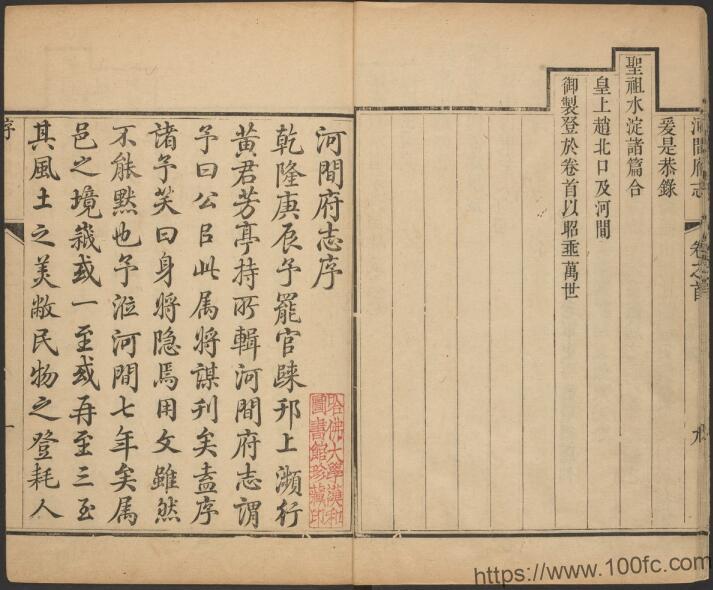 河間府志
卷之首
九
爰是恭錄
聖祖水淀諸篇合
皇上趙北口及河間
御製登於卷首以昭垂萬世
河間府志序
乾隆庚辰予罷官歸邗上瀕行
黃君芳亭持所輯河間府志謂
予曰公吕此属将謀刋矣盍序
諸予笑曰身将隐焉用文雖然
不能黙也予涖河間七年矣属
邑之境嵗或一至或再至三至
其風土之美敝民物之登耗人
哈佛大學漢和
圖書館珍藏印
序
一
https://www.100fc.com